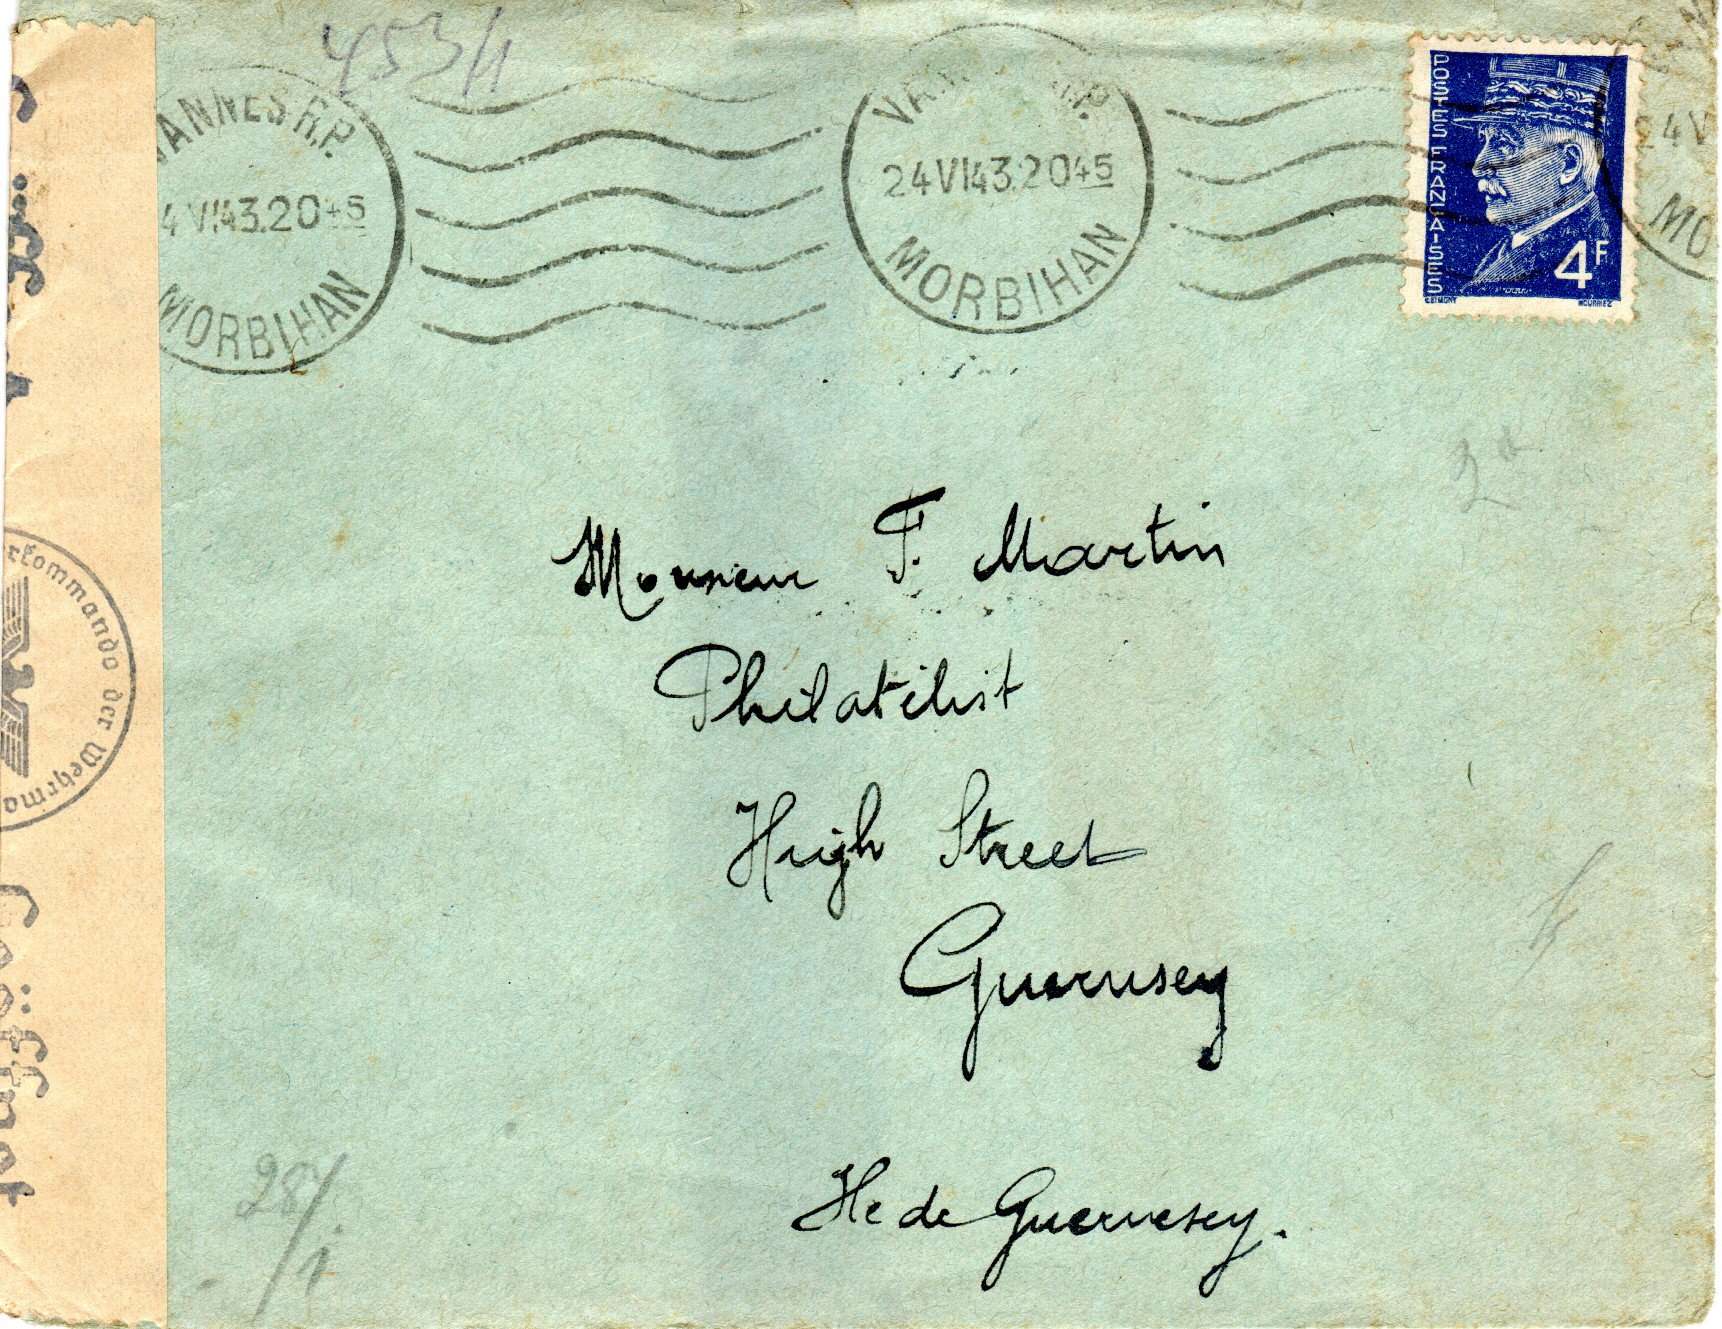 453/1
VANNES R.P.
4 VI 43.2045
MORBIHAN
R.P.
24 VI 43.2045
MORBIHAN
24 V
MO
POSTES FRANÇAISES
4F
Monsieur F. Martin
Philatélist
High Street
Guernsey
Ile de Guernesey.
rkommando der Wehrma
284/1